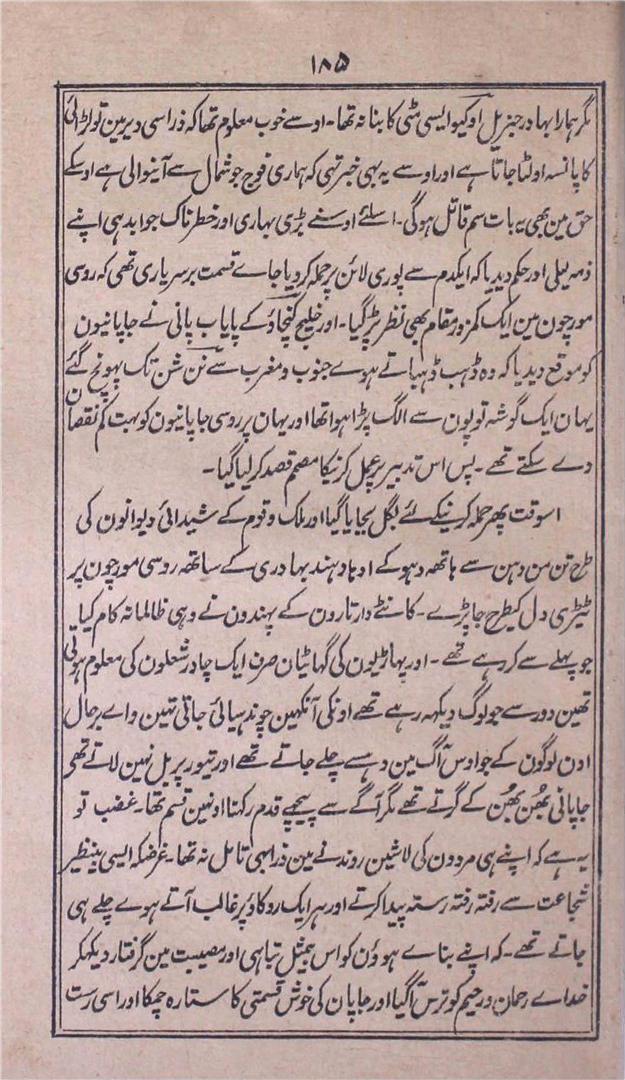 ۱۸۵
مگر ہمارا بہادر جنریل اوکیو ایسی مٹی کا بنا نہ تھا۔ اوسے خوب معلوم تھا کہ ذراسی دیر مین تو لڑائی
کا پانسہ اولٹا جاتا ہے اور اوسے یہ بہی خبر تہی کہ ہماری فوج جو شمال سے آنیوالی ہے اوسکے
حق مین بھی یہ بات سم قاتل ہوگی۔ اسلئے اوسنے بڑی بہاری اور خطرناک جوابدہی اپنے
ذمہ لیلی اور حکم دیدیا کہ ایکدم سے پوری لائن پر حملہ کر دیا جاے قسمت برسریاری تھی کہ روسی
مورچون مین ایک کمزور مقام بھی نظر پڑ گیا۔ اور خلیج کنچاؤ کے پایاب پانی نے جاپانیون
کو موقع دیدیا کہ وہ ڈہب ڈہباتے ہوے جنوب و مغرب سے نن شن تک پہونچ گئے
یہان ایک گوشہ توپون سے الگ پڑا ہوا تھا اور یہان پر روسی جاپانیون کو بہت کم نقصان
دے سکتے تھے۔ پس اس تدبیر پر عمل کرنیکا مصمم قصد کر لیا گیا۔
اسوقت پھر حملہ کرنیکے لئے بگل بجایا گیا اور ملک و قوم کے شیدائی دیوانون کی
طرح تن من دہن سے ہاتھہ دہو کے ادہادہند بہادری کے ساتھہ روسی مورچون پر
ٹیڑی دل کیطرح جا پڑے۔ کانٹے دار تارون کے پہندون نے وہی ظالمانہ کام کیا
جو پہلے سے کر رہے تھے۔ اور پہاڑیون کی گہاٹیان صرف ایک چادر شعلون کی معلوم ہوتی
تھین دور سے جو لوگ دیکہہ رہے تھے اونکی آنکھین چوندہیائی جاتی تہین واے برحال
اون لوگون کے جو اوس آگ مین دہسے چلے جاتے تھے اور تیور پر بل نہین لاتے تھی
جاپانی بھُن بھُن کے گرتے تھے مگر آگے سے پیچھے قدم رکہنا اونہین قسم تھا۔ غضب تو
یہ ہے کہ اپنے ہی مردون کی لاشین روندنے مین ذرا بہی تامل نہ تھا۔ غرضکہ ایسی بینظیر
شجاعت سے رفتہ رفتہ رستہ پیدا کرتے اور ہر ایک روکاؤ پر غالب آتے ہوے چلے ہی
جاتے تھے۔ کہ اپنے بناے ہوؤن کو اس بیمثل تباہی اور مصیبت مین گرفتار دیکہکر
خداے رحمان و رحیم کو ترس آگیا اور جاپان کی خوش قسمتی کا ستارہ چمکا اور اسی رست